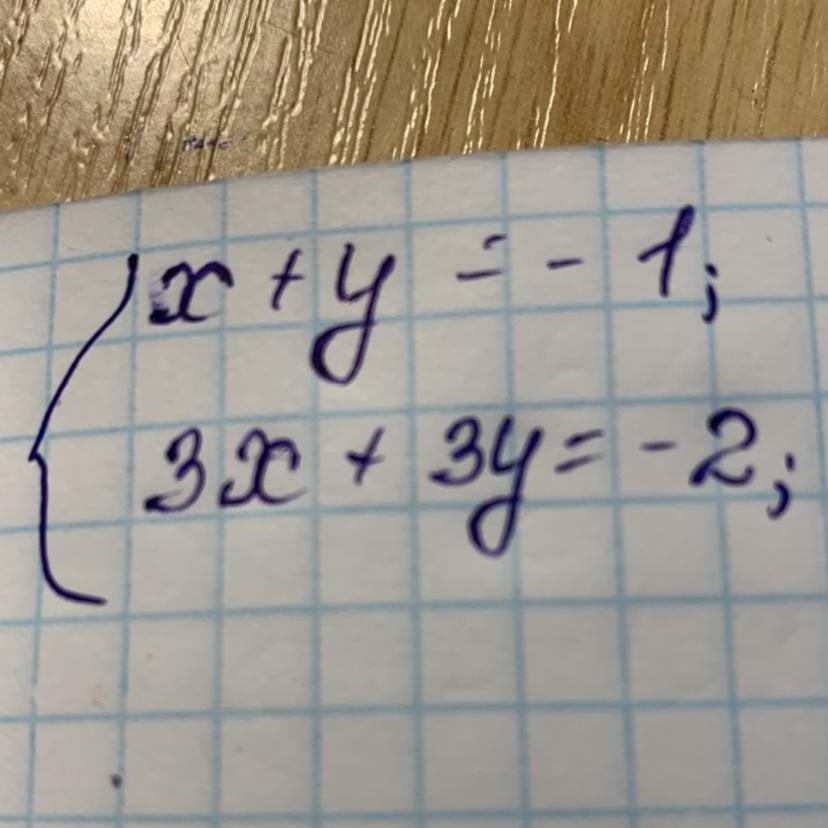 x + y = - 1;
3x + 3y = - 2;